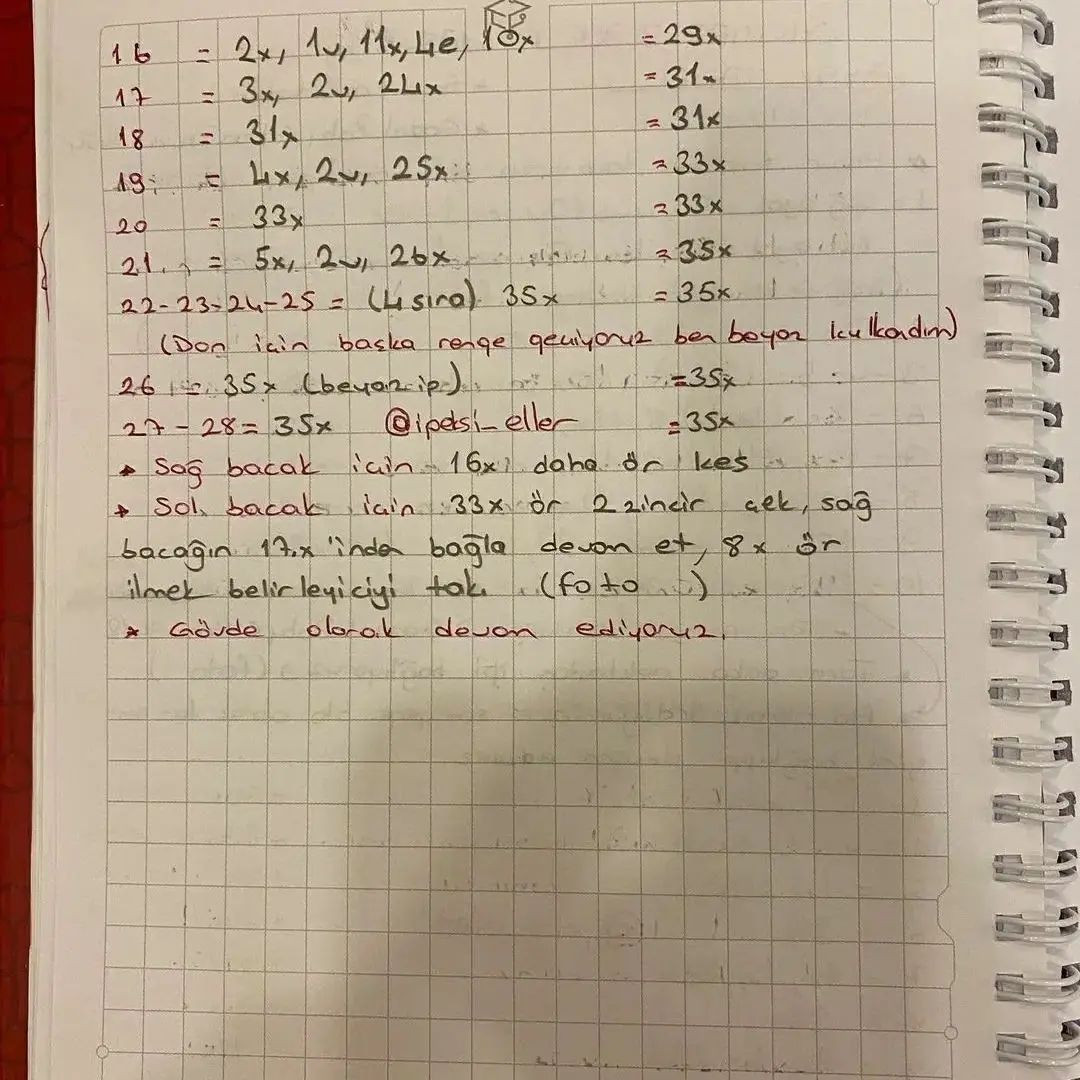 16 = 2x, 1v, 11x, 4e, 10x = 29x
17 = 3x, 2v, 24x = 31x
18 = 31x = 31x
19 = 4x, 2v, 25x = 33x
20 = 33x = 33x
21. = 5x, 2v, 26x = 35x
22-23-24-25 = (4 sıra) 35x = 35x
(Don için başka renge geçiyoruz ben beyaz kullandım)
26 = 35x (beyaz ip) =35x
27-28= 35x @ipeksi_eller =35x
* Sağ bacak için 16x daha ör kes
* Sol bacak için 33x ör 2 zincir çek, sağ
bacağın 17.x'inden bağla devam et, 8x ör
ilmek belirleyiciyi tak. (foto )
* Gövde olarak devam ediyoruz.